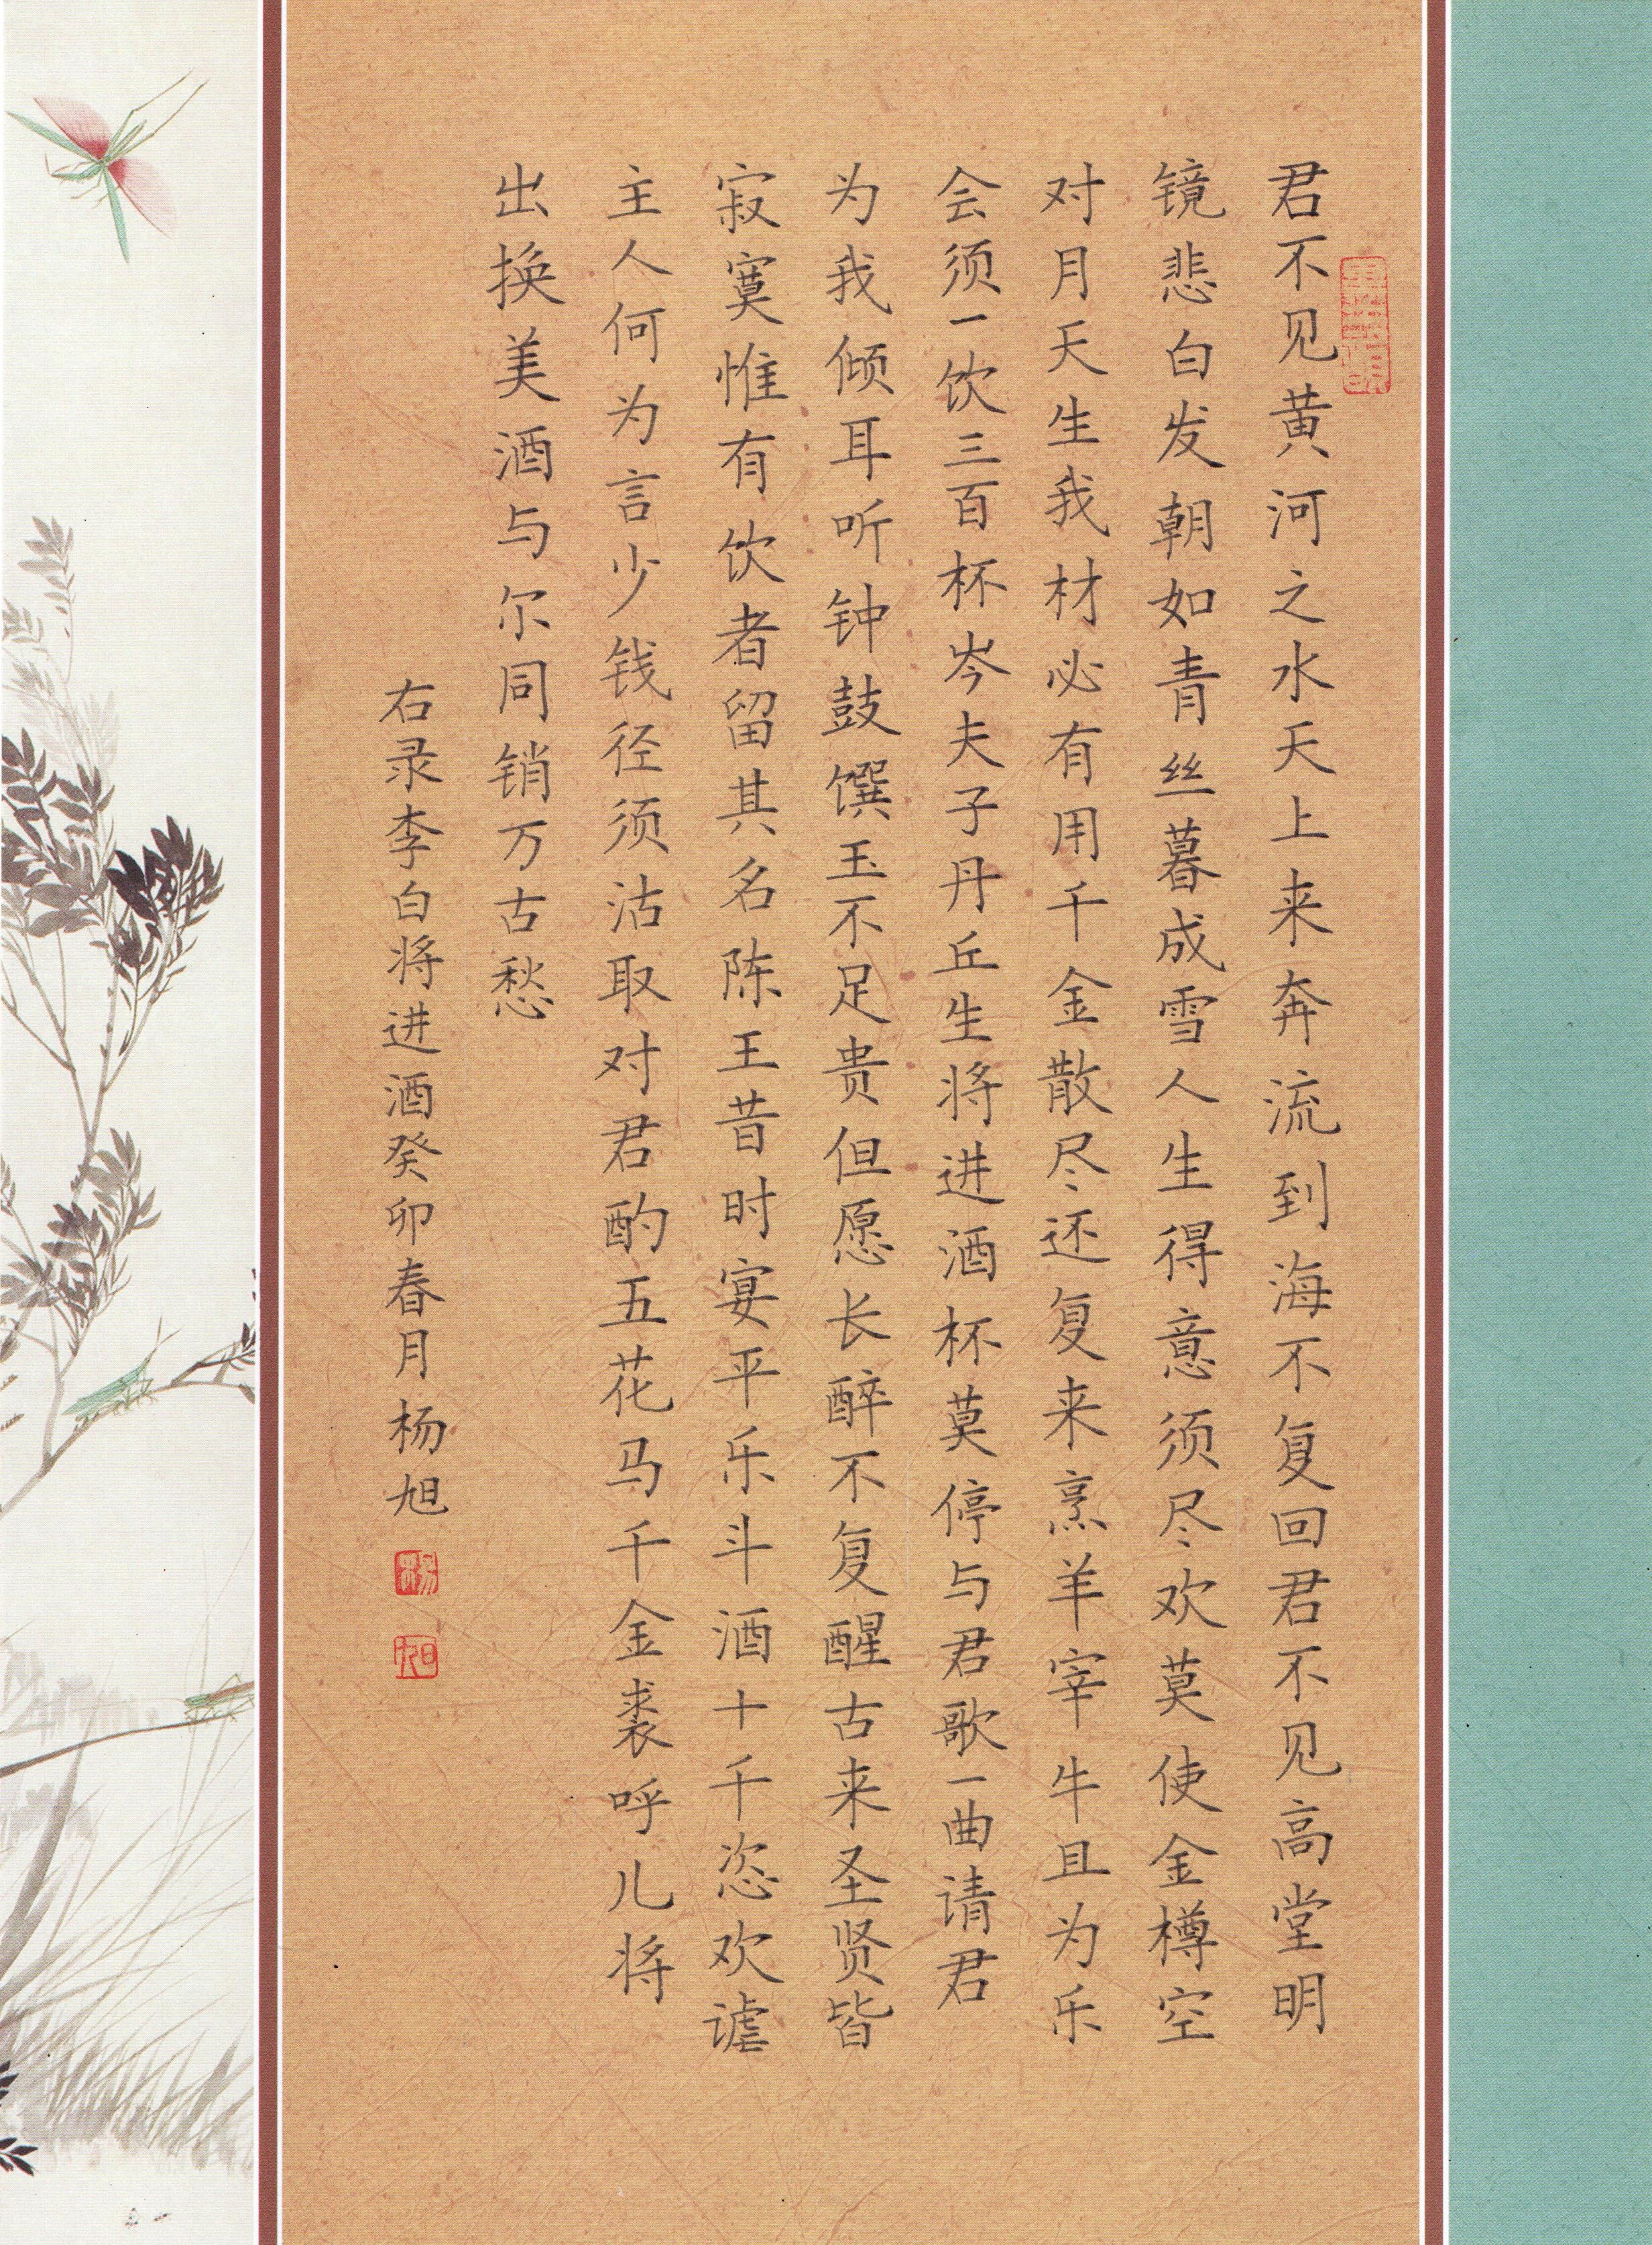 君不见黄河之水天上来奔流到海不复回君不见高堂明
镜悲白发朝如青丝暮成雪人生得意须尽欢莫使金樽空
对月天生我材必有用千金散尽还复来烹羊宰牛且为乐
会须一饮三百杯岑夫子丹丘生将进酒杯莫停与君歌一曲请君
为我倾耳听钟鼓馔玉不足贵但愿长醉不复醒古来圣贤皆
寂寞惟有饮者留其名陈王昔时宴平乐斗酒十千恣欢谑
主人何为言少钱径须沽取对君酌五花马千金裘呼儿将
出换美酒与尔同销万古愁
右录李白将进酒癸卯春月杨旭